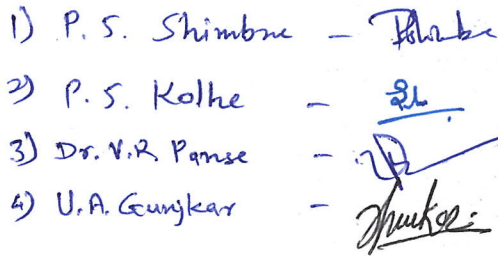 1) P. S. Shimbre -
2) P. S. Kolhe -
3) Dr. V.R Panse -
4) U.A. Gunjkar -